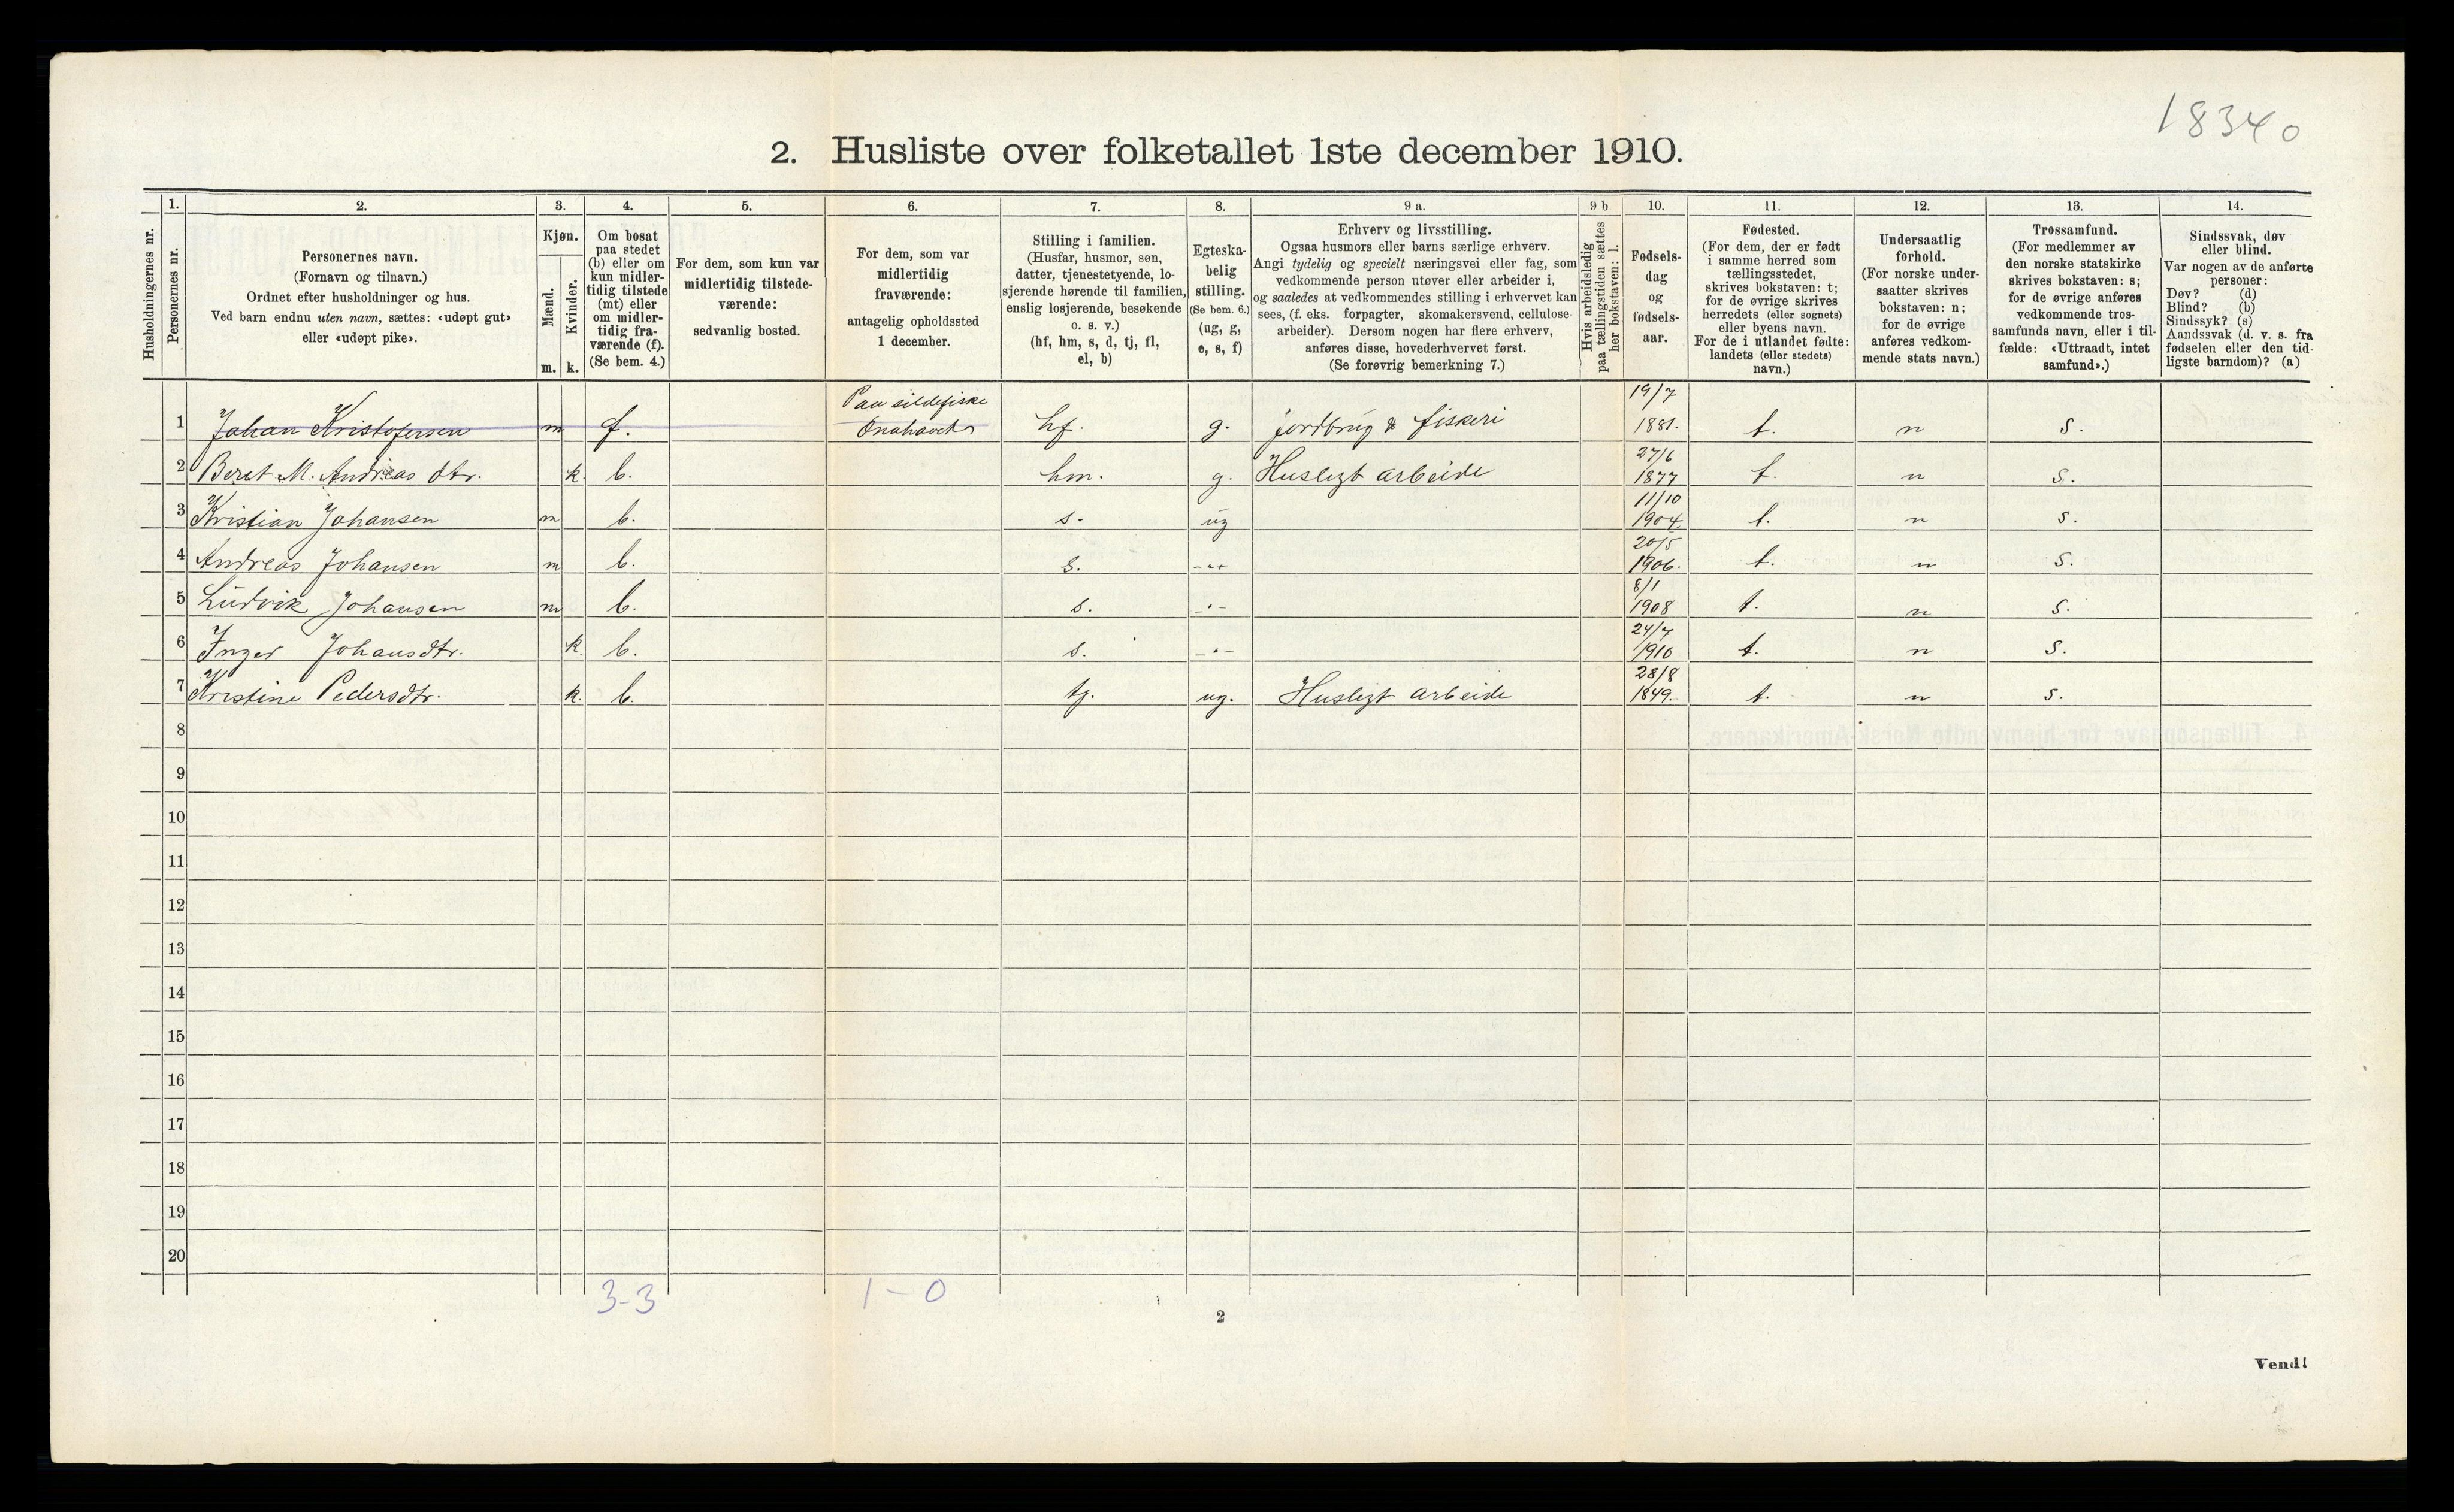 18340
2. Husliste over folketallet 1ste december 1910.
Husholdningernes nr.
1.
Personernes nr.
2.
Personernes navn.
(Fornavn og tilnavn.)
Ordnet efter husholdninger og hus.
Ved barn endnu uten navn, sættes: «udøpt gut»
eller «udøpt pike».
3.
Kjøn.
Mænd.
Kvinder.
m. k.
4.
Om bosat
paa stedet
(b) eller om
kun midler-
tidig tilstede
(mt) eller
om midler-
tidig fra-
værende (f).
(Se bem. 4.)
5.
For dem, som kun var
midlertidig tilstede-
værende:
sedvanlig bosted.
6.
For dem, som var
midlertidig
fraværende:
antagelig opholdssted
1 december.
7.
Stilling i familien.
(Husfar, husmor, søn,
datter, tjenestetyende, lo-
sjerende hørende til familien,
enslig losjerende, besøkende
o. s. v.)
(hf, hm, s, d, tj, fl,
el, b)
8.
Egteska-
belig
stilling.
(Se bem. 6.)
(ug, g,
e, s, f)
9 a.
Erhverv og livsstilling.
Ogsaa husmors eller barns særlige erhverv.
Angi tydelig og specielt næringsvei eller fag, som
vedkommende person utøver eller arbeider i,
og saaledes at vedkommendes stilling i erhvervet kan
sees, (f. eks. forpagter, skomakersvend, cellulose-
arbeider). Dersom nogen har flere erhverv,
anføres disse, hovederhvervet først.
(Se forøvrig bemerkning 7.)
9 b
Hvis arbeidsledig
paa tællingstiden sættes
her bokstaven: l.
10.
Fødsels-
dag
og
fødsels-
aar.
11.
Fødested.
(For dem, der er født
i samme herred som
tællingsstedet,
skrives bokstaven: t;
for de øvrige skrives
herredets (eller sognets)
eller byens navn.
For de i utlandet fødte:
landets (eller stedets)
navn.)
12.
Undersaatlig
forhold.
(For norske under-
saatter skrives
bokstaven: n;
for de øvrige
anføres vedkom-
mende stats navn.)
13.
Trossamfund.
(For medlemmer av
den norske statskirke
skrives bokstaven: s;
for de øvrige anføres
vedkommende tros-
samfunds navn, eller i til-
fælde: «Uttraadt, intet
samfund».)
14.
Sindssvak, døv
eller blind.
Var nogen av de anførte
personer:
Døv? (d)
Blind? (b)
Sindssyk? (s)
Aandssvak (d. v. s. fra
fødselen eller den tid-
ligste barndom)? (a)
1 Johan Kristofersen m f. Paa sildefiske hf. g. jordbrug & fiskeri 19/7 1881. t. n s.
2 Beret M. Andreas dtr. k. b. hm. g. Husligt arbeide 27/6 1877 t. n s.
3 Kristian Johansen m b. s. ug 11/10 1904. t. n s.
4 Andreas Johansen m b. s. -"- 20/5 1906. t. n s.
5 Ludvik Johansen m b. s. -"- 8/1 1908 t. n s.
6 Inger Johansdtr. k. b. s. -"- 24/7 1910 t. n s.
7 Kristine Pedersdtr. k. b. tj. ug. Husligt arbeide 28/8 1849. t. n s.
8
9
10
11
12
13
14
15
16
17
18
19
20
3-3 1-0
2
Vend!